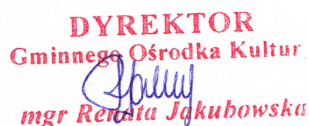 DYREKTOR
Gminnego Ośrodka Kultur
mgr Renata Jakubowska